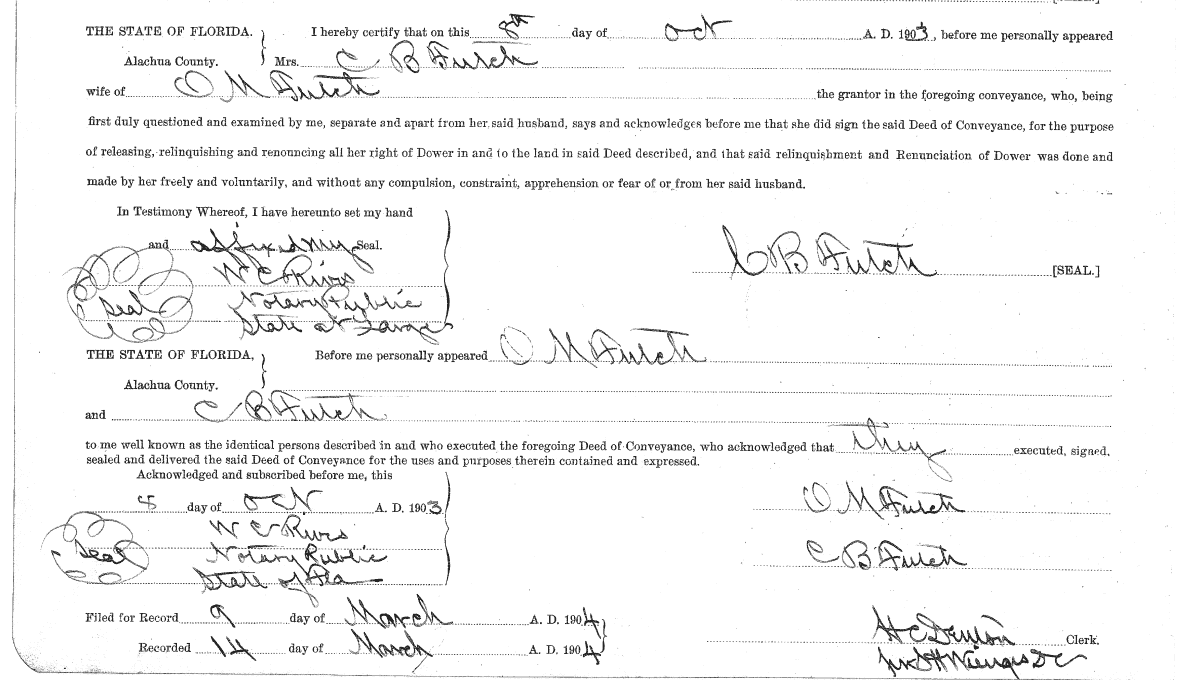 THE STATE OF FLORIDA. I hereby certify that on this 8th day of Oct A. D. 1903, before me personally appeared
Alachua County. Mrs. C B Futch
wife of O M Futch the grantor in the foregoing conveyance, who, being
first duly questioned and examined by me, separate and apart from her said husband, says and acknowledges before me that she did sign the said Deed of Conveyance, for the purpose
of releasing, relinquishing and renouncing all her right of Dower in and to the land in said Deed described, and that said relinquishment and Renunciation of Dower was done and
made by her freely and voluntarily, and without any compulsion, constraint, apprehension or fear of or from her said husband.
In Testimony Whereof, I have hereunto set my hand
and affixed my Seal.
C B Futch [SEAL.]
W C Rivs
Seal Notary Public
State at Large
THE STATE OF FLORIDA, Before me personally appeared O M Futch
Alachua County.
and C B Futch
to me well known as the identical persons described in and who executed the foregoing Deed of Conveyance, who acknowledged that they executed, signed,
sealed and delivered the said Deed of Conveyance for the uses and purposes therein contained and expressed.
Acknowledged and subscribed before me, this
8 day of Oct A. D. 1903 O M Futch
W C Rivs
Seal Notary Public C B Futch
State of Fla
Filed for Record 9 day of March A. D. 1904
H C Denton Clerk.
Recorded 14 day of March A. D. 1904
D C